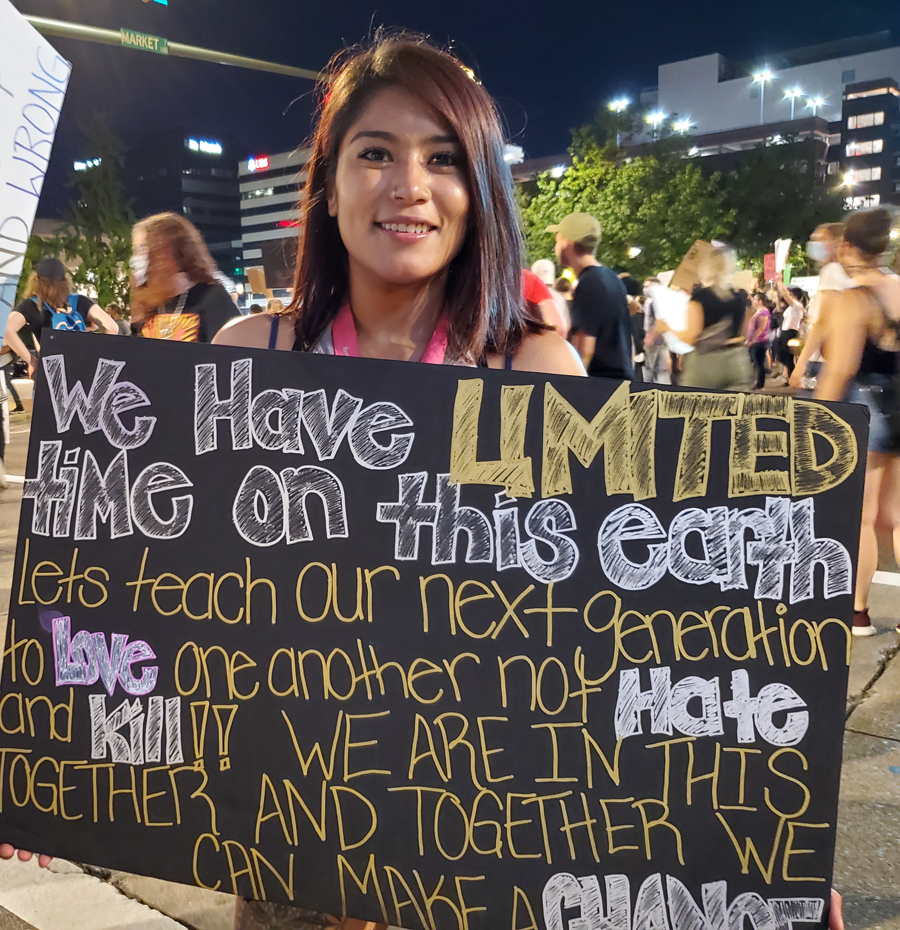 MARKET
AND WRONG
We Have LIMITED
time on this earth
Lets teach our next generation
to Love one another not Hate
and Kill!! WE ARE IN THIS
TOGETHER AND TOGETHER WE
CAN MAKE A CHANGE